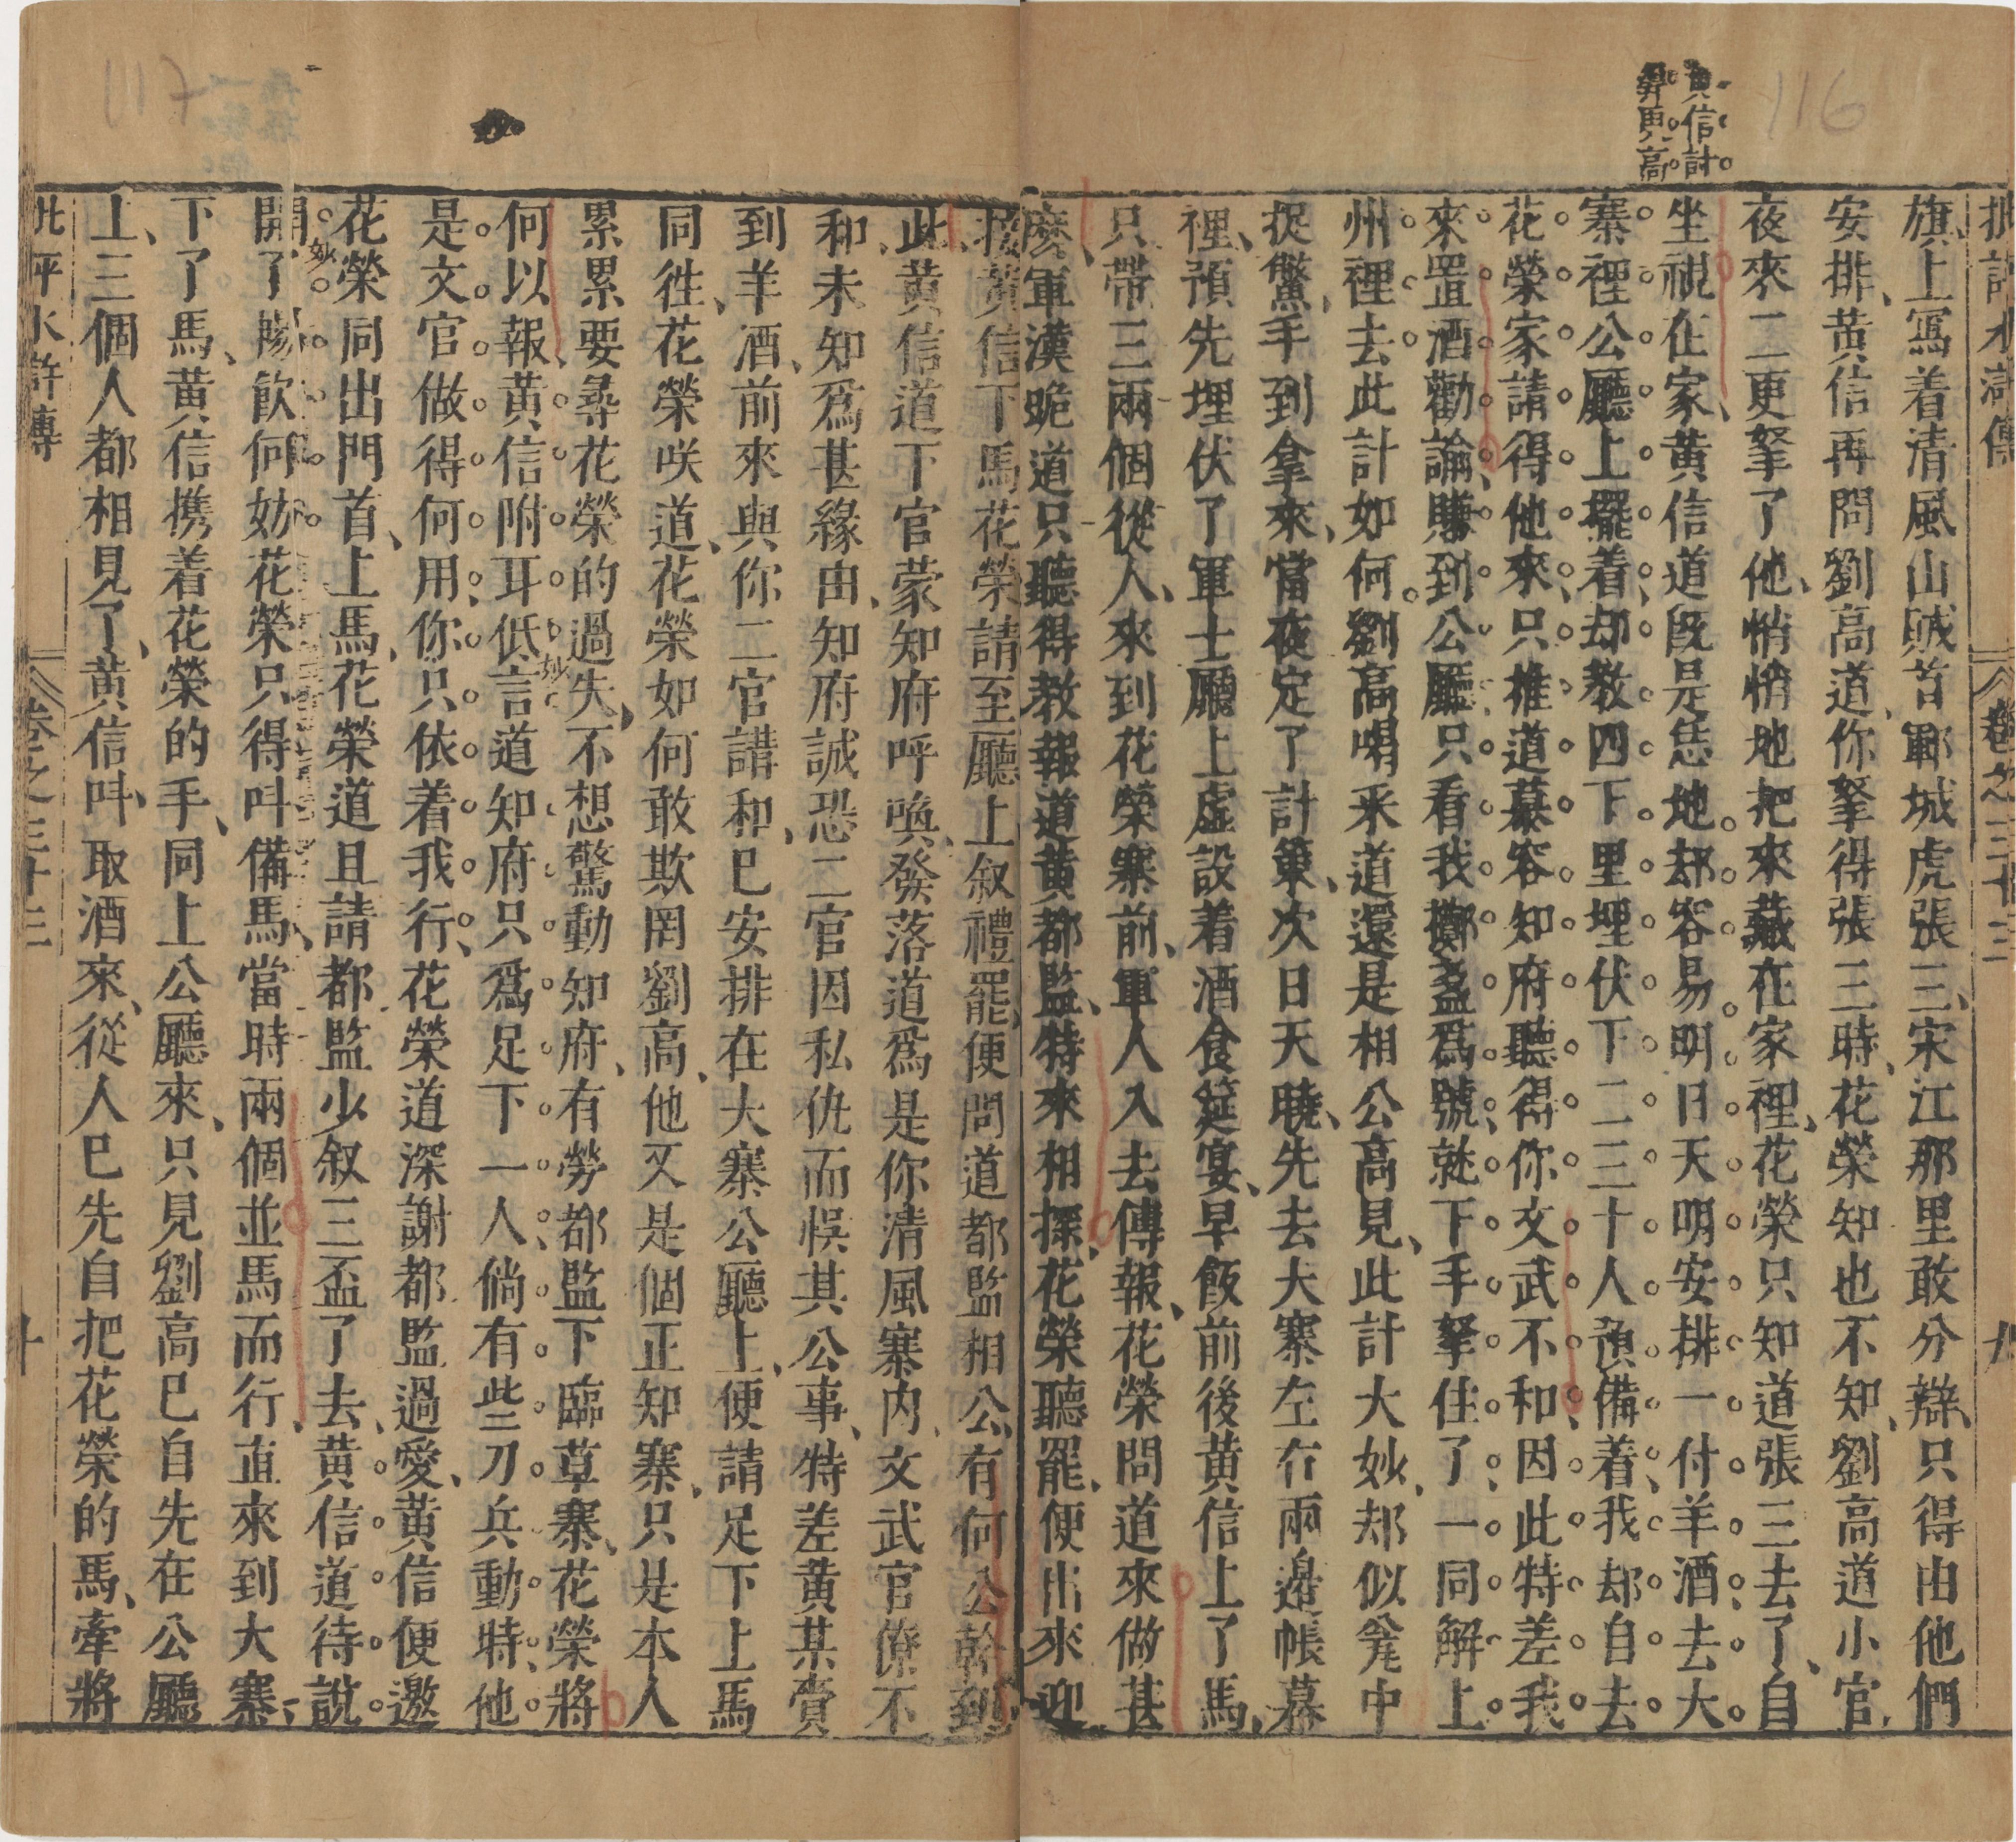 116
黃信計
算更高
批評水滸傳
卷之三十三
九
旗上寫着清風山賊首鄆城虎張三宋江那里敢分辯只得由他們
安排黃信再問劉高道你拏得張三時花榮知也不知劉高道小官
夜來二更拏了他悄悄地把來藏在家裡花榮只知道張三去了自
坐視在家黃信道既是恁地却容易明日天明安排一付羊酒去大
寨裡公廳上擺着却教四下里埋伏下二三十人預備着我却自去
花榮家請得他來只推道慕容知府聽得你文武不和因此特差我
來置酒勸諭賺到公廳只看我擲盞爲號就下手拏住了一同解上
州裡去此計如何劉高喝采道還是相公高見此計大妙却似瓮中
捉鱉手到拿來當夜定了計策次日天曉先去大寨左右兩邊帳幕
裡預先埋伏了軍士廳上虛設着酒食筵宴早飯前後黃信上了馬
只帶三兩個從人來到花榮寨前軍人入去傳報花榮問道來做甚
麽軍漢跪道只聽得教報道黃都監特來相探花榮聽罷便出來迎
接黃信下馬花榮請至廳上叙禮罷便問道都監相公有何公幹到
此黃信道下官蒙知府呼喚發落道爲是你清風寨內文武官僚不
和未知爲甚緣由知府誠恐二官因私仇而悞其公事特差黃某賫
到羊酒前來與你二官講和已安排在大寨公廳上便請足下上馬
同徃花榮咲道花榮如何敢欺罔劉高他又是個正知寨只是本人
累累要尋花榮的過失不想驚動知府有勞都監下臨草寨花榮將
何以報黃信附耳低言道知府只爲足下一人倘有些刀兵動時他
妙
是文官做得何用你只依着我行花榮道深謝都監過愛黃信便邀
花榮同出門首上馬花榮道且請都監少叙三盃了去黃信道待說
妙
開了暢飲何妨花榮只得呌備馬當時兩個並馬而行直來到大寨
下了馬黃信携着花榮的手同上公廳來只見劉高已自先在公廳
上三個人都相見了黃信呌取酒來從人已先自把花榮的馬牽將
批評水滸傳
卷之三十三
十
117